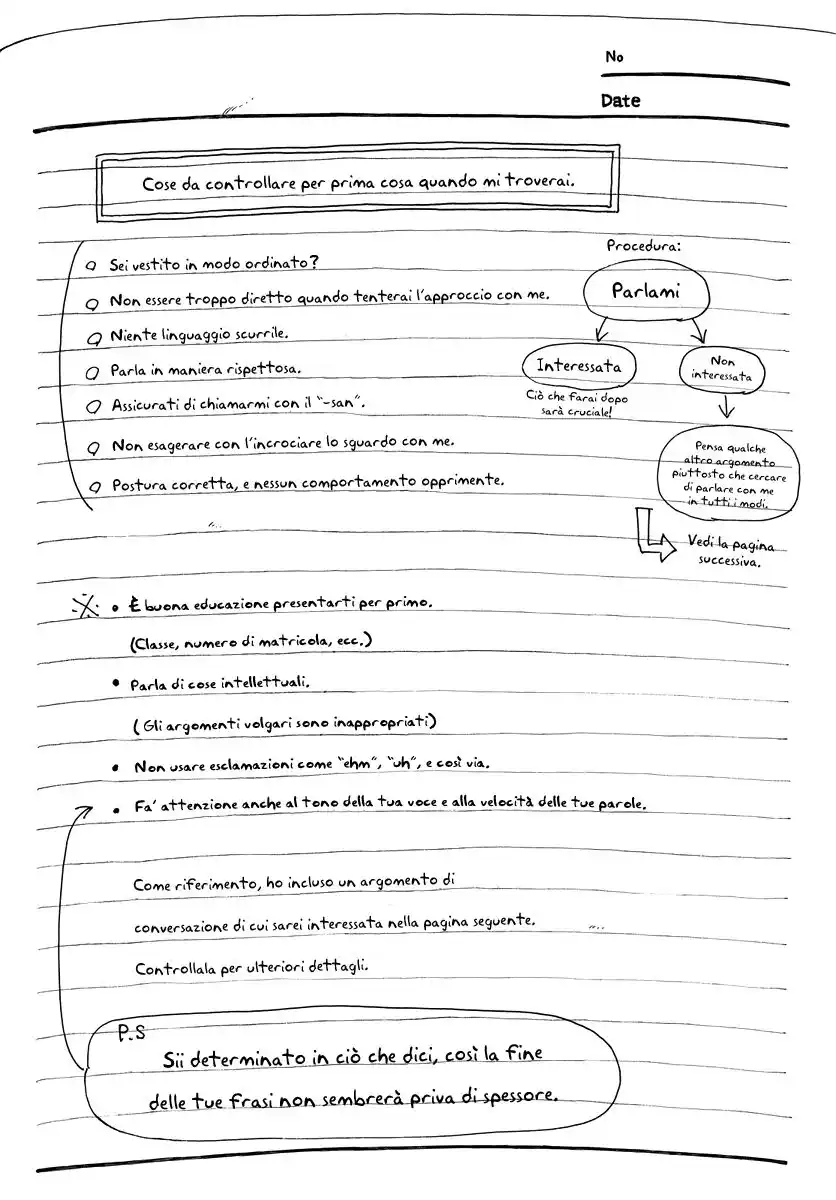 No
Date
Cose da controllare per prima cosa quando mi troverai.
Sei vestito in modo ordinato?
Non essere troppo diretto quando tenterai l'approccio con me.
Niente linguaggio scurrile.
Parla in maniera rispettosa.
Assicurati di chiamarmi con il "-san".
Non esagerare con l'incrociare lo sguardo con me.
Postura corretta, e nessun comportamento opprimente.
Procedura:
Parlami
Interessata
Ciò che farai dopo
sarà cruciale!
Non
interessata
Pensa qualche
altro argomento
piuttosto che cercare
di parlare con me
in tutti i modi.
Vedi la pagina
successiva.
※ • È buona educazione presentarti per primo.
(Classe, numero di matricola, ecc.)
• Parla di cose intellettuali.
(Gli argomenti volgari sono inappropriati)
• Non usare esclamazioni come "ehm", "uh", e così via.
• Fa' attenzione anche al tono della tua voce e alla velocità delle tue parole.
Come riferimento, ho incluso un argomento di
conversazione di cui sarei interessata nella pagina seguente.
Controllala per ulteriori dettagli.
P.S
Sii determinato in ciò che dici, così la fine
delle tue frasi non sembrerà priva di spessore.